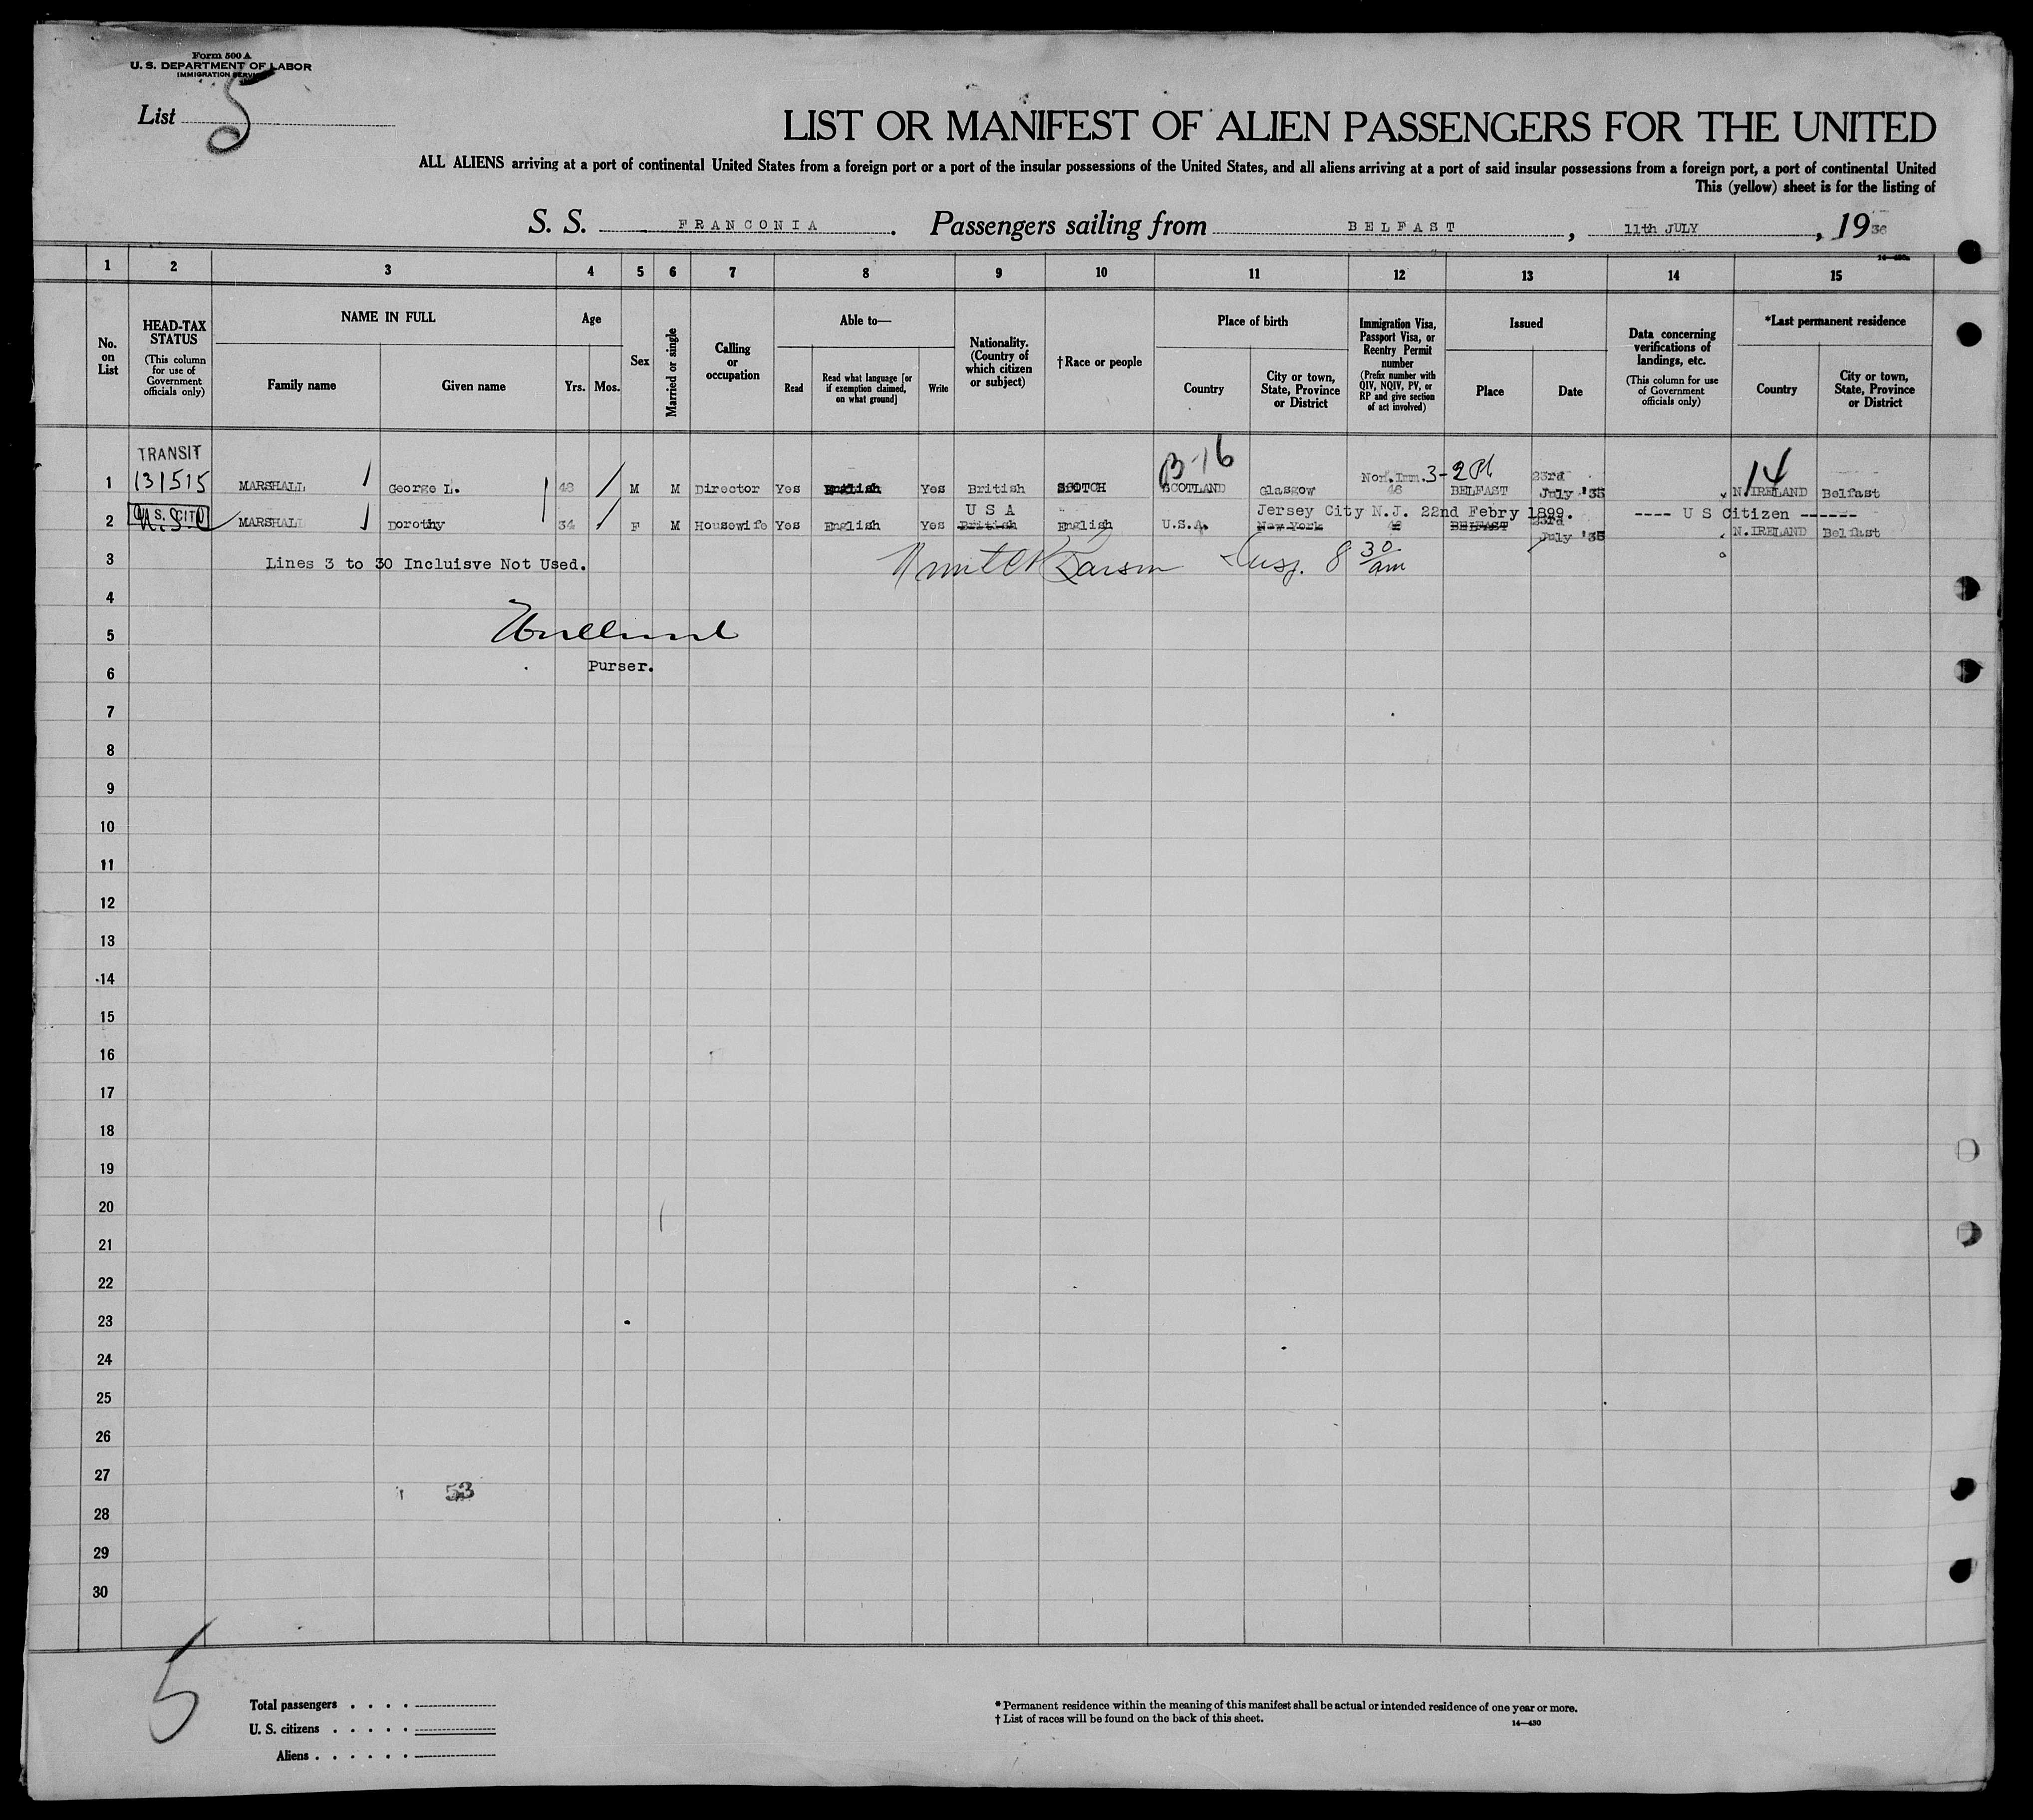 Form 500 A
U. S. DEPARTMENT OF LABOR
IMMIGRATION SERVICE
List 5
LIST OR MANIFEST OF ALIEN PASSENGERS FOR THE UNITED
ALL ALIENS arriving at a port of continental United States from a foreign port or a port of the insular possessions of the United States, and all aliens arriving at a port of said insular possessions from a foreign port, a port of continental United
This (yellow) sheet is for the listing of
S. S. FRANCONIA. Passengers sailing from BELFAST, 11th JULY, 1936
14—430a
1 2 3 4 5 6 7 8 9 10 11 12 13 14 15
No. on List
HEAD-TAX STATUS
(This column for use of Government officials only)
NAME IN FULL
Family name
Given name
Age
Yrs. Mos.
Sex
Married or single
Calling or occupation
Able to—
Read
Read what language [or if exemption claimed, on what ground]
Write
Nationality. (Country of which citizen or subject)
†Race or people
Place of birth
Country
City or town, State, Province or District
Immigration Visa, Passport Visa, or Reentry Permit number
(Prefix number with QIV, NQIV, PV, or RP and give section of act involved)
Issued
Place
Date
Data concerning verifications of landings, etc.
(This column for use of Government officials only)
*Last permanent residence
Country
City or town, State, Province or District
TRANSIT
B-16
Non.Imm. 3-2 23rd 14
1 131515 MARSHALL George L. 48 M M Director Yes English Yes British SCOTCH SCOTLAND Glasgow 46 BELFAST July '35 N.IRELAND Belfast
U S A Jersey City N.J. 22nd Febry 1899. ---- U S Citizen ------
2 U.S. CIT MARSHALL Dorothy 34 F M Housewife Yes English Yes British English U.S.A. New York BELFAST 23rd July '35 N.IRELAND Belfast
3 Lines 3 to 30 Incluisve Not Used. Insp. 8 30 am
4
5
6 Purser.
7
8
9
10
11
12
13
14
15
16
17
18
19
20
21
22
23
24
25
26
27
53
28
29
30
5
Total passengers . . . .
U. S. citizens . . . . .
Aliens . . . . . .
* Permanent residence within the meaning of this manifest shall be actual or intended residence of one year or more.
† List of races will be found on the back of this sheet.
14—430